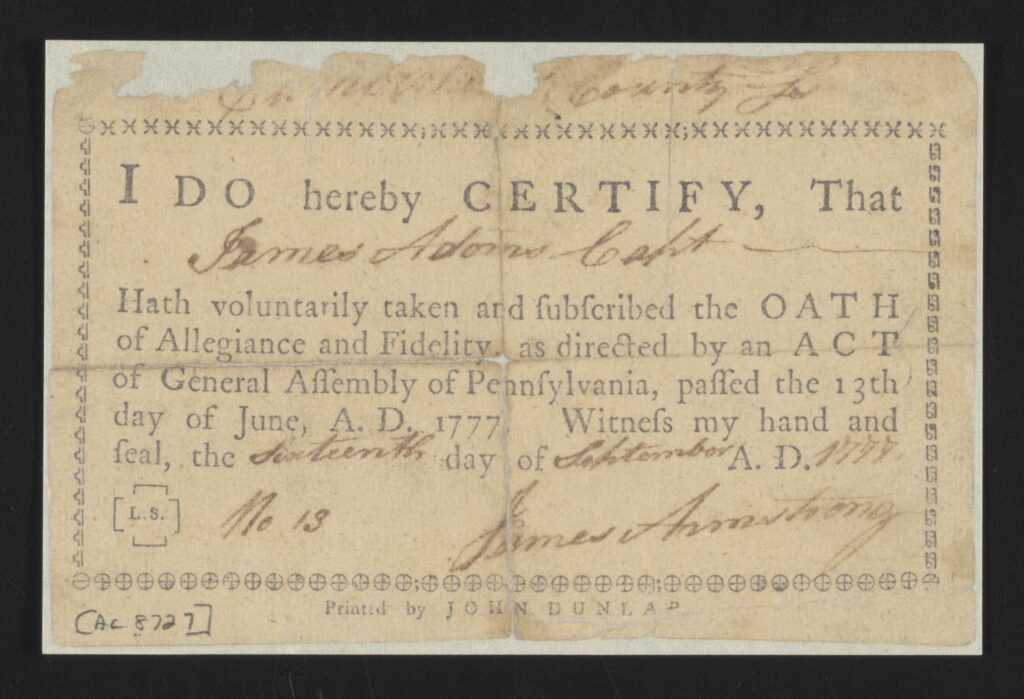 County Ss
I DO hereby CERTIFY, That
James Adams Capt
Hath voluntarily taken and ſubſcribed the OATH
of Allegiance and Fidelity, as directed by an ACT
of General Aſſembly of Pennſylvania, paſſed the 13th
day of June, A. D. 1777. Witneſs my hand and
ſeal, the Sixteenth day of September A. D. 1777.
L.S. No 13
James Armstrong
Printed by JOHN DUNLAP
[Ac 8727]